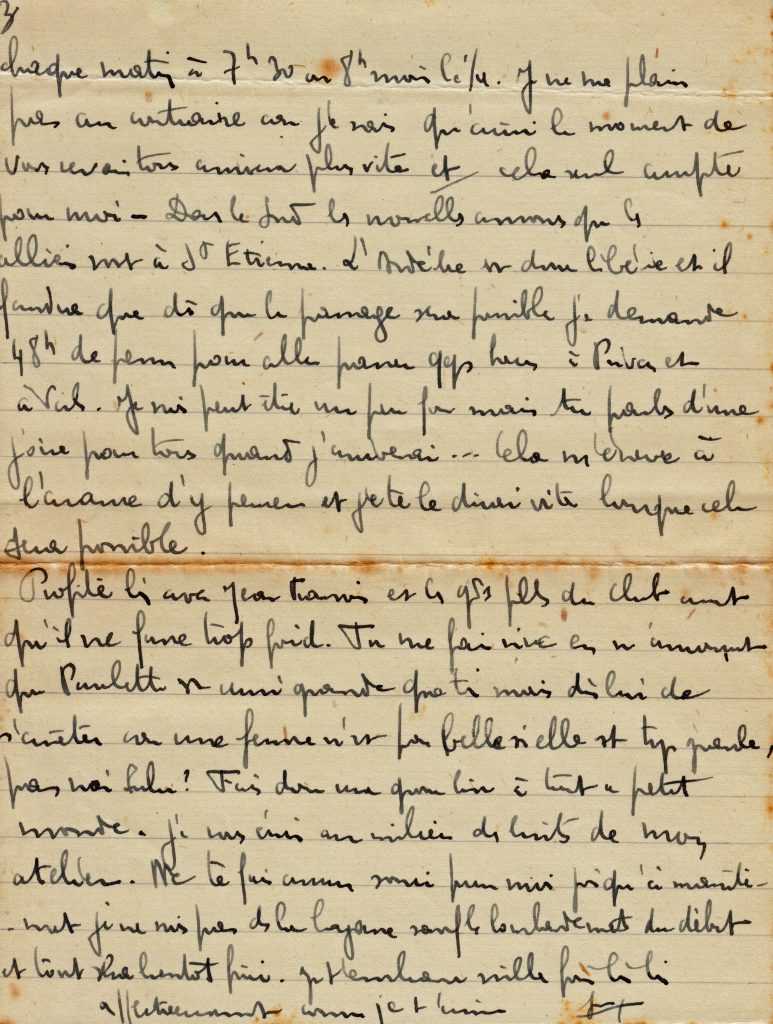 3/
chaque matin à 7h30 ou 8h moins le 1/4. Je ne me plains
pas au contraire car je sais qu'ainsi le moment de
vous revoir tous arrivera plus vite et cela seul compte
pour moi - Dans le Sud les nouvelles annoncent que les
alliés sont à St Etienne. L'Ardèche est donc libérée et il
faudra que dès que le passage sera possible je demande
48h de perm pour aller passer qqs heures à Privas et
à Vals. Je suis peut être un peu fou mais tu parles d'une
joie pour tous quand j'arriverai ... Cela m'énerve à
l'avance d'y penser et je te le dirai vite lorsque cela
sera possible.
Profite bien avec Jean Francis et les qqs filles du club avant
qu'il ne fasse trop froid. Tu me fais rire en m'annonçant
que Paulette est aussi grande que toi mais dis lui de
s'arrêter car une femme n'est pas belle si elle est trop grande,
pas vrai Lulu? Fais donc un gros bise à tout ce petit
monde. Je vous écris au milieu des bruits de mon
atelier. Ne te fais aucun souci pour moi jusqu'à mainte-
-nant je ne suis pas dans la bagarre sauf les bombardements du début
et tout sera bientôt fini. Je t'embrasse mille fois
affectueusement comme je t'aime